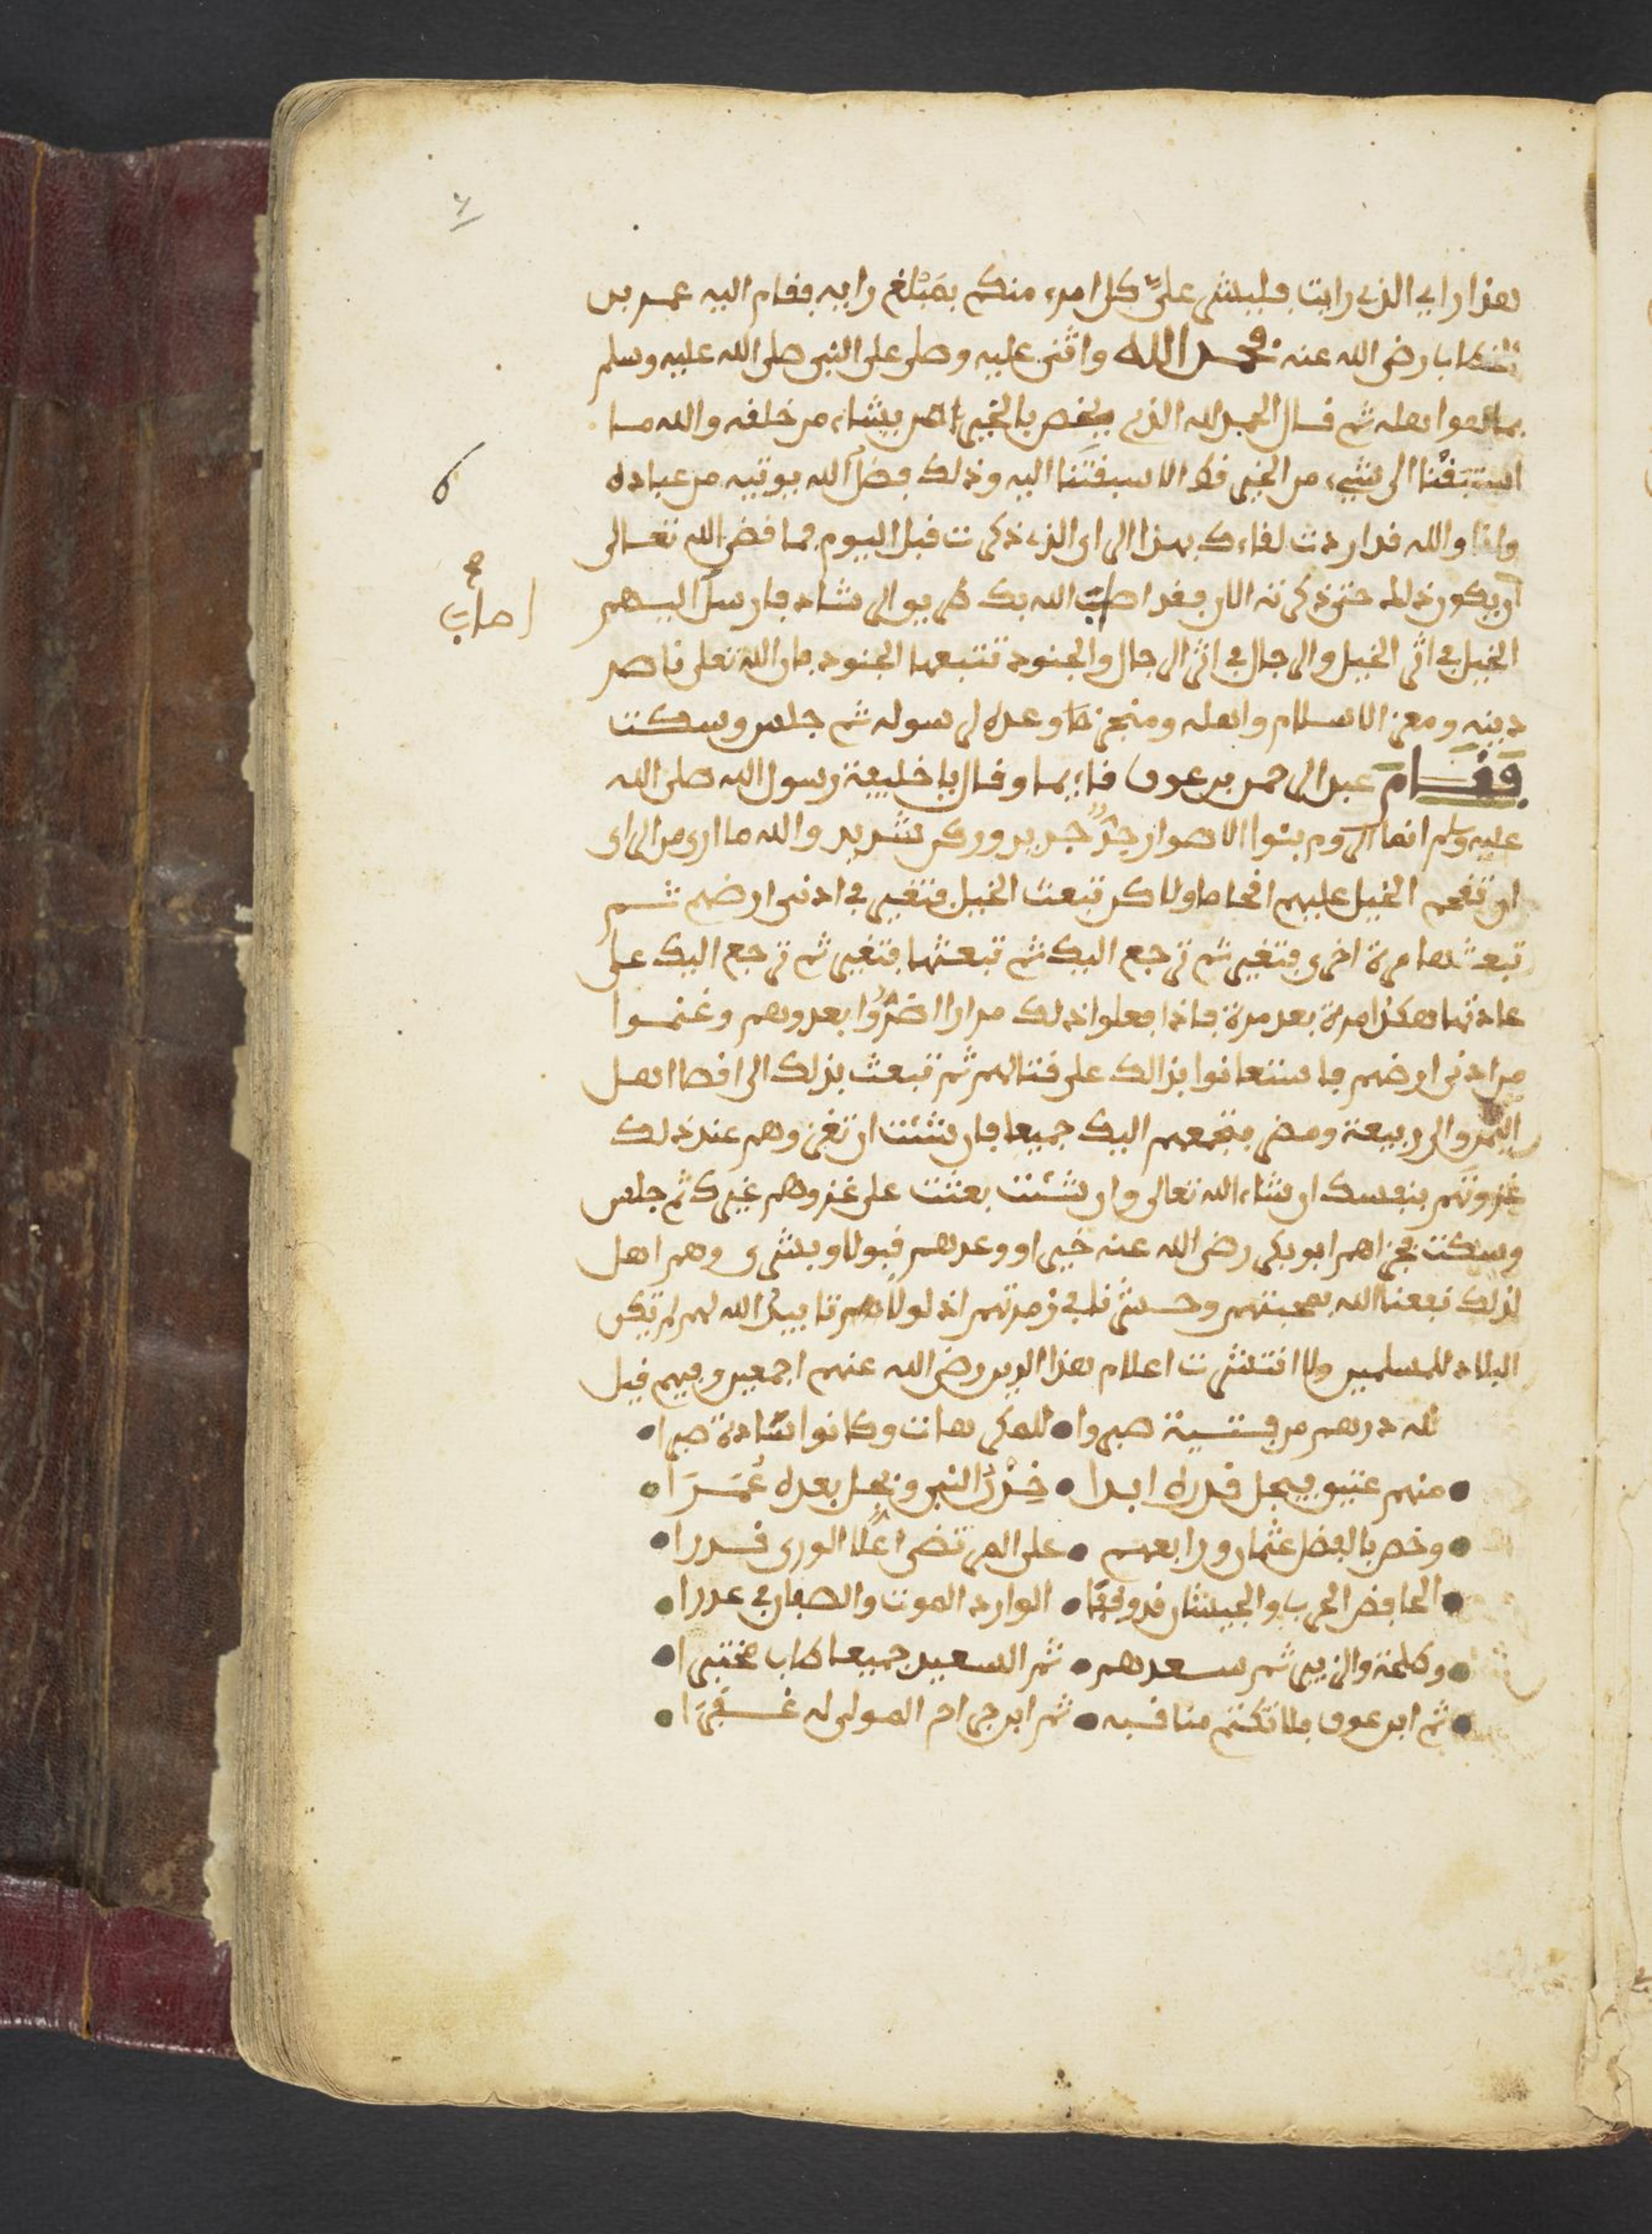 هذا راي الذي رايت فليشر علي كل امرء منكم بمبلغ رايه فقام اليه عمر بن
الخطاب رضي الله عنه فحمد الله واثنى عليه وصلى على النبي صلى الله عليه وسلم
بما هو اهله ثم قال الحمد لله الذي يخص بالخير من يشاء من خلقه والله ما
استبقنا الى شيء من الخير قط الا سبقتنا اليه وذلك فضل الله يوتيه من عباده
وانا والله قد اردت لقاءك بهذا الراي الذي ذكرت قبل اليوم فما قضى الله تعالى
ان يكون ذلك حتى ذكرته الان فقد اصاب الله بك طريق الرشاد فارسل اليهم
الخيل في اثر الخيل والرجال في اثر الرجال والجنود تتبعها الجنود فان الله تعلى ناصر
دينه ومعز الاسلام واهله ومنجز ما وعده لرسوله ثم جلس وسكت
فقام عبد الرحمن بن عوف قائما وقال يا خليفة رسول الله صلى الله
عليه وسلم انها الروم بنوا الاصفر حد حديد وركن شديد والله ما ارى من الراي
ان تقحم الخيل عليهم اقحاما ولاكن تبعث الخيل فتغير في ادنى ارضهم ثم
تبعثها مرة اخرى فتغير ثم ترجع اليك ثم تبعثها فتغير ثم ترجع اليك على
عادتها هكذا مرة بعد مرة فاذا فعلوا ذلك مرارا اضروا بعدوهم وغنموا
من ادنى ارضهم فاستعانوا بذالك على قتالهم ثم تبعث بذلك الى اقصا اهل
اليمن والى ربيعة ومضر فتجمعهم اليك جميعا فان شئت ان تغزوهم عند ذلك
غزوتهم بنفسك ان شاء الله تعالى وان شئت بعثت على غزوهم غيرك ثم جلس
وسكت فجزاهم ابو بكر رضي الله عنه خيرا ووعدهم قبولا وبشرى وهم اهل
لذلك نفعنا الله بمحبتهم وحشرنا في زمرتهم اذ لولاهم تاييد الله لهم لم تكن
البلاد للمسلمين ولا انتشرت اعلام هذا الدين رضي الله عنهم اجمعين وفيهم قيل
لله درهم من فتية صبروا • للمكرهات وكانوا سادة صبرا •
• منهم عتيق فيجل قدره ابدا • خدن النبي ونجل بعده عمرا •
• وخص بالفضل عثمان ورابعهم • على المرتضى اعلا الورى قدرا •
• الحافض الحرب والجيشان قد وقفا • الوارد الموت والصفان في عددا •
• وطلحة والزبير ثم سعدهم • ثم السعيد جميعا طاب مختبرا •
• ثم ابن عوف فلا تكتم مناقبه • ثم ابن جراح المولى له غفرا •
اصاب
صح
٦